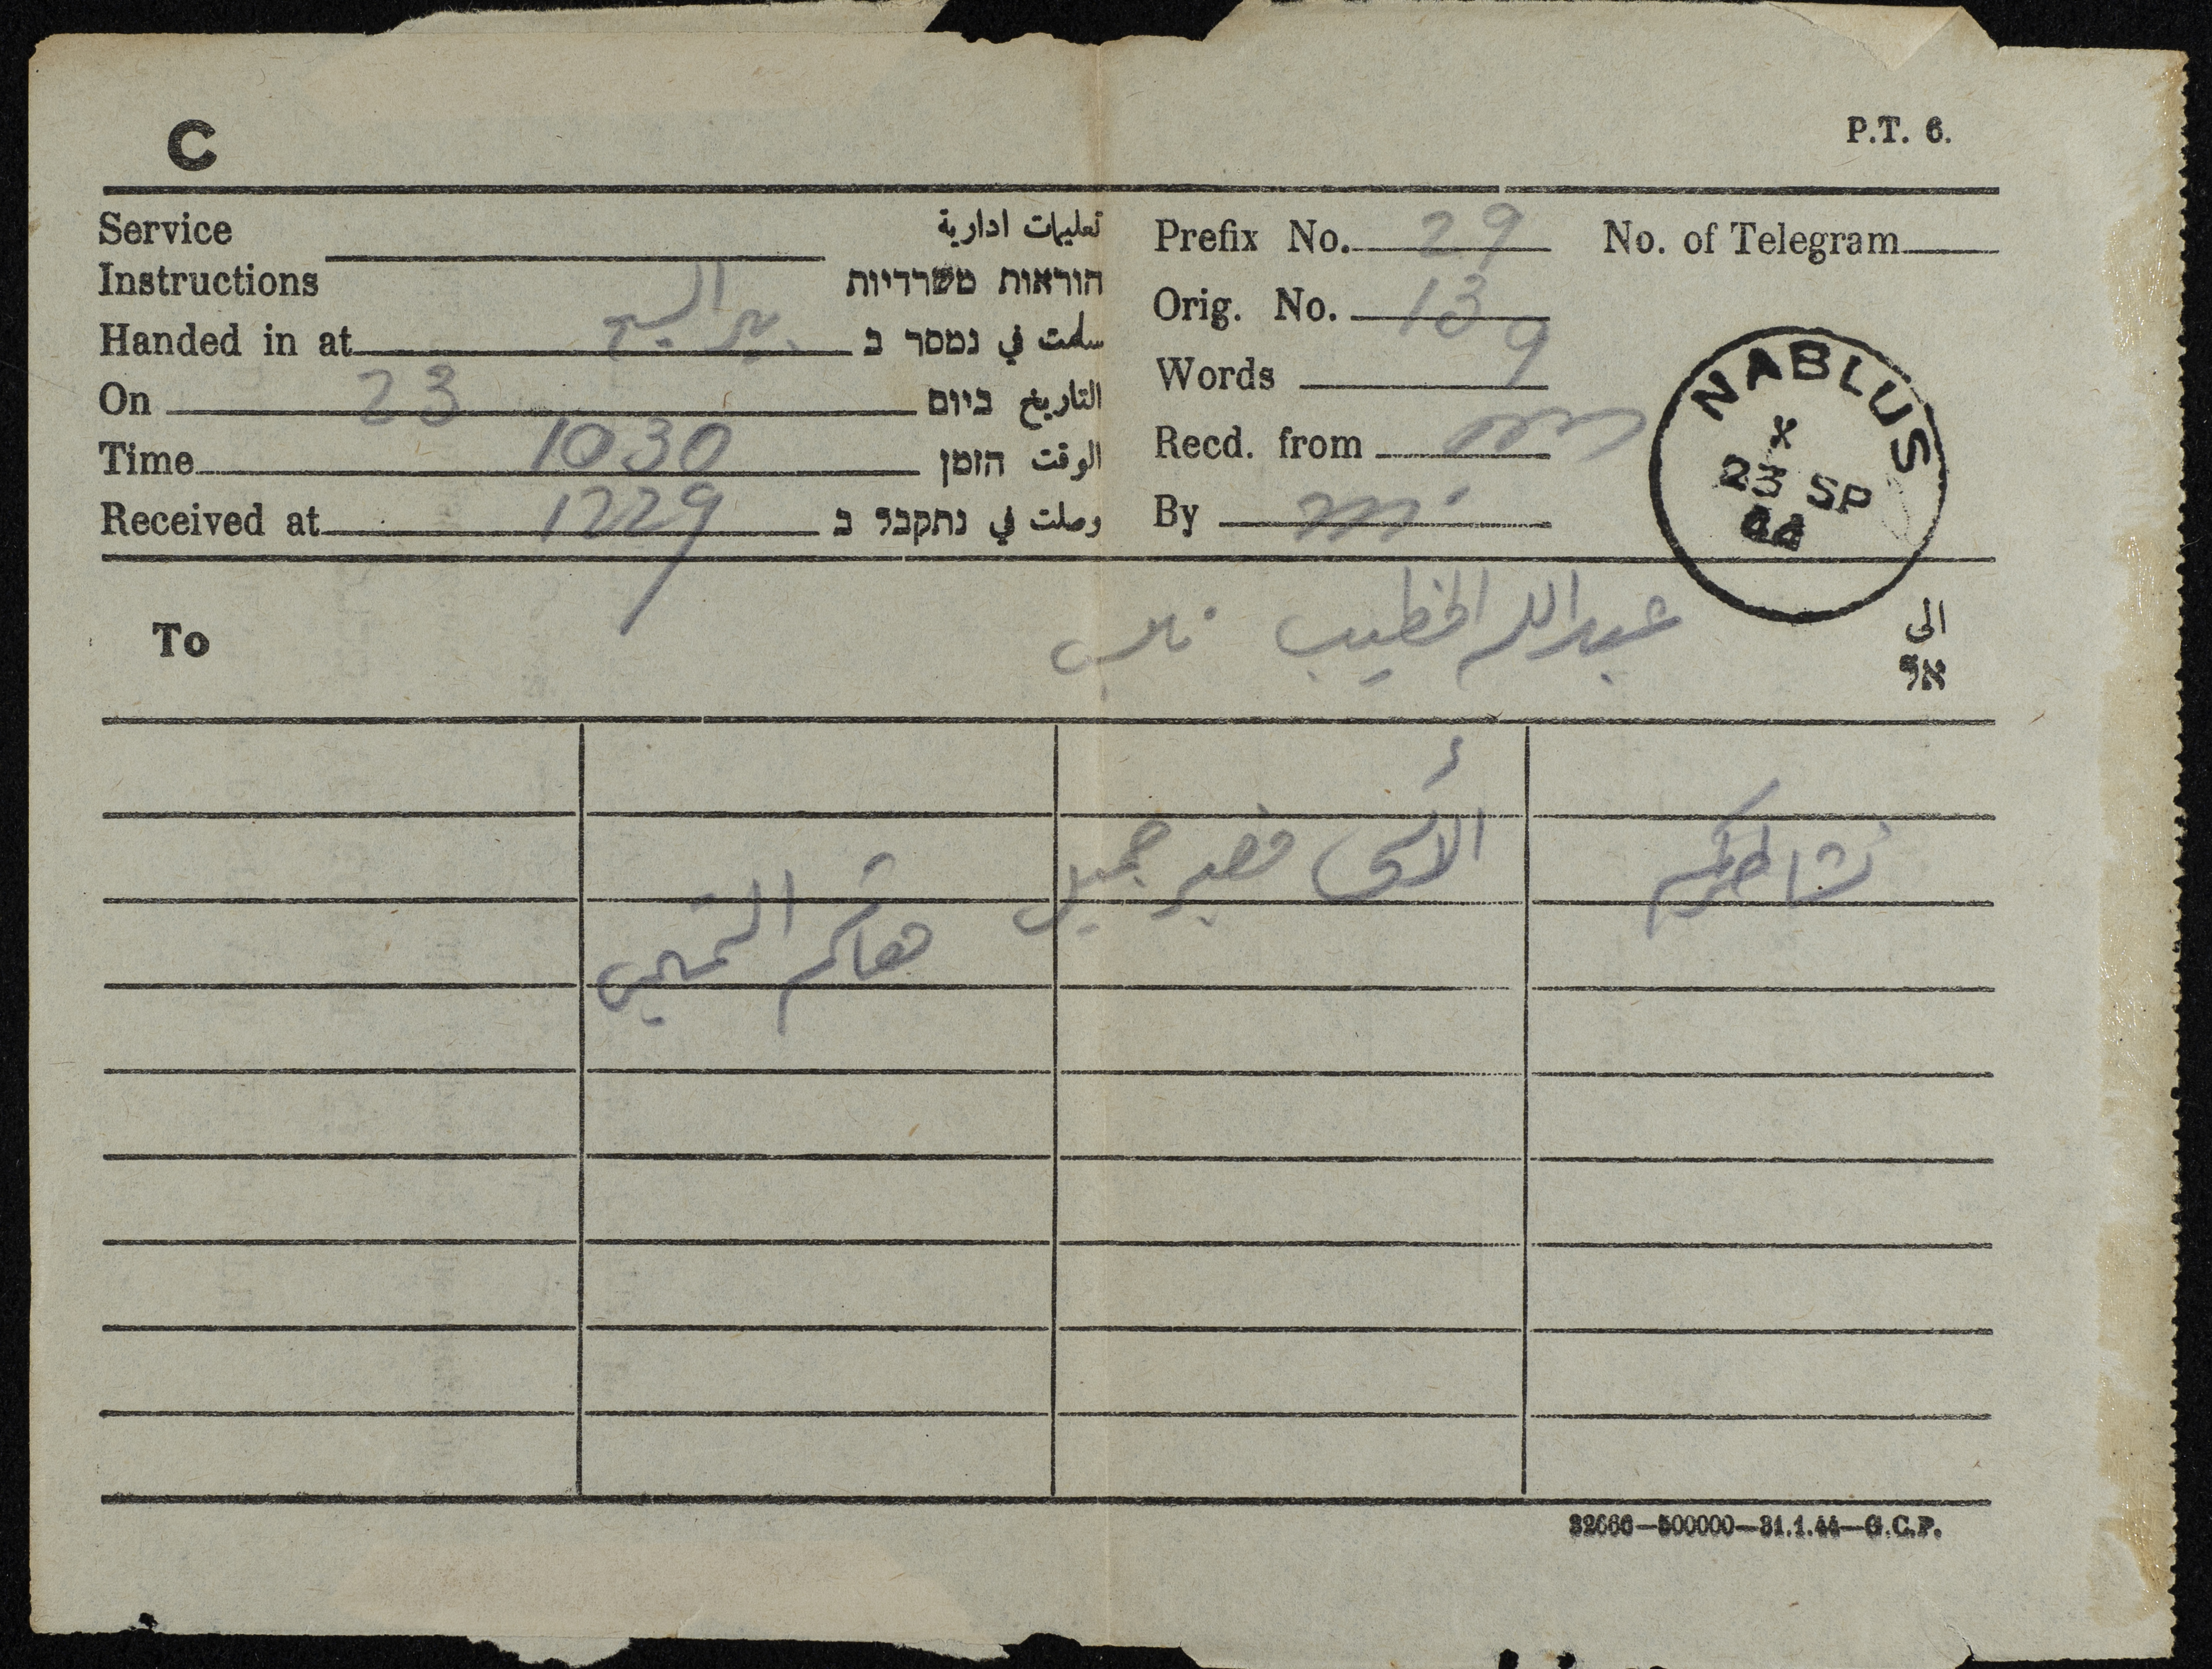 C
P.T. 6.
Service Instructions تعليمات ادارية
הוראות משרדיות
Handed in at بير السبع سلمت في נמסר ב
On 23 التاريخ ביום
Time 1030 الوقت הזמן
Received at 1229 وصلت في נתקבל ב
Prefix No. 29 No. of Telegram
Orig. No. 13
Words 9
Recd. from
By
NABLUS
X
23 SP
44
To عبدالله الخطيب نابلس الى
אל
نشاطركم الأسى فصبر جميل
32666—500000—31.1.44—G.C.P.